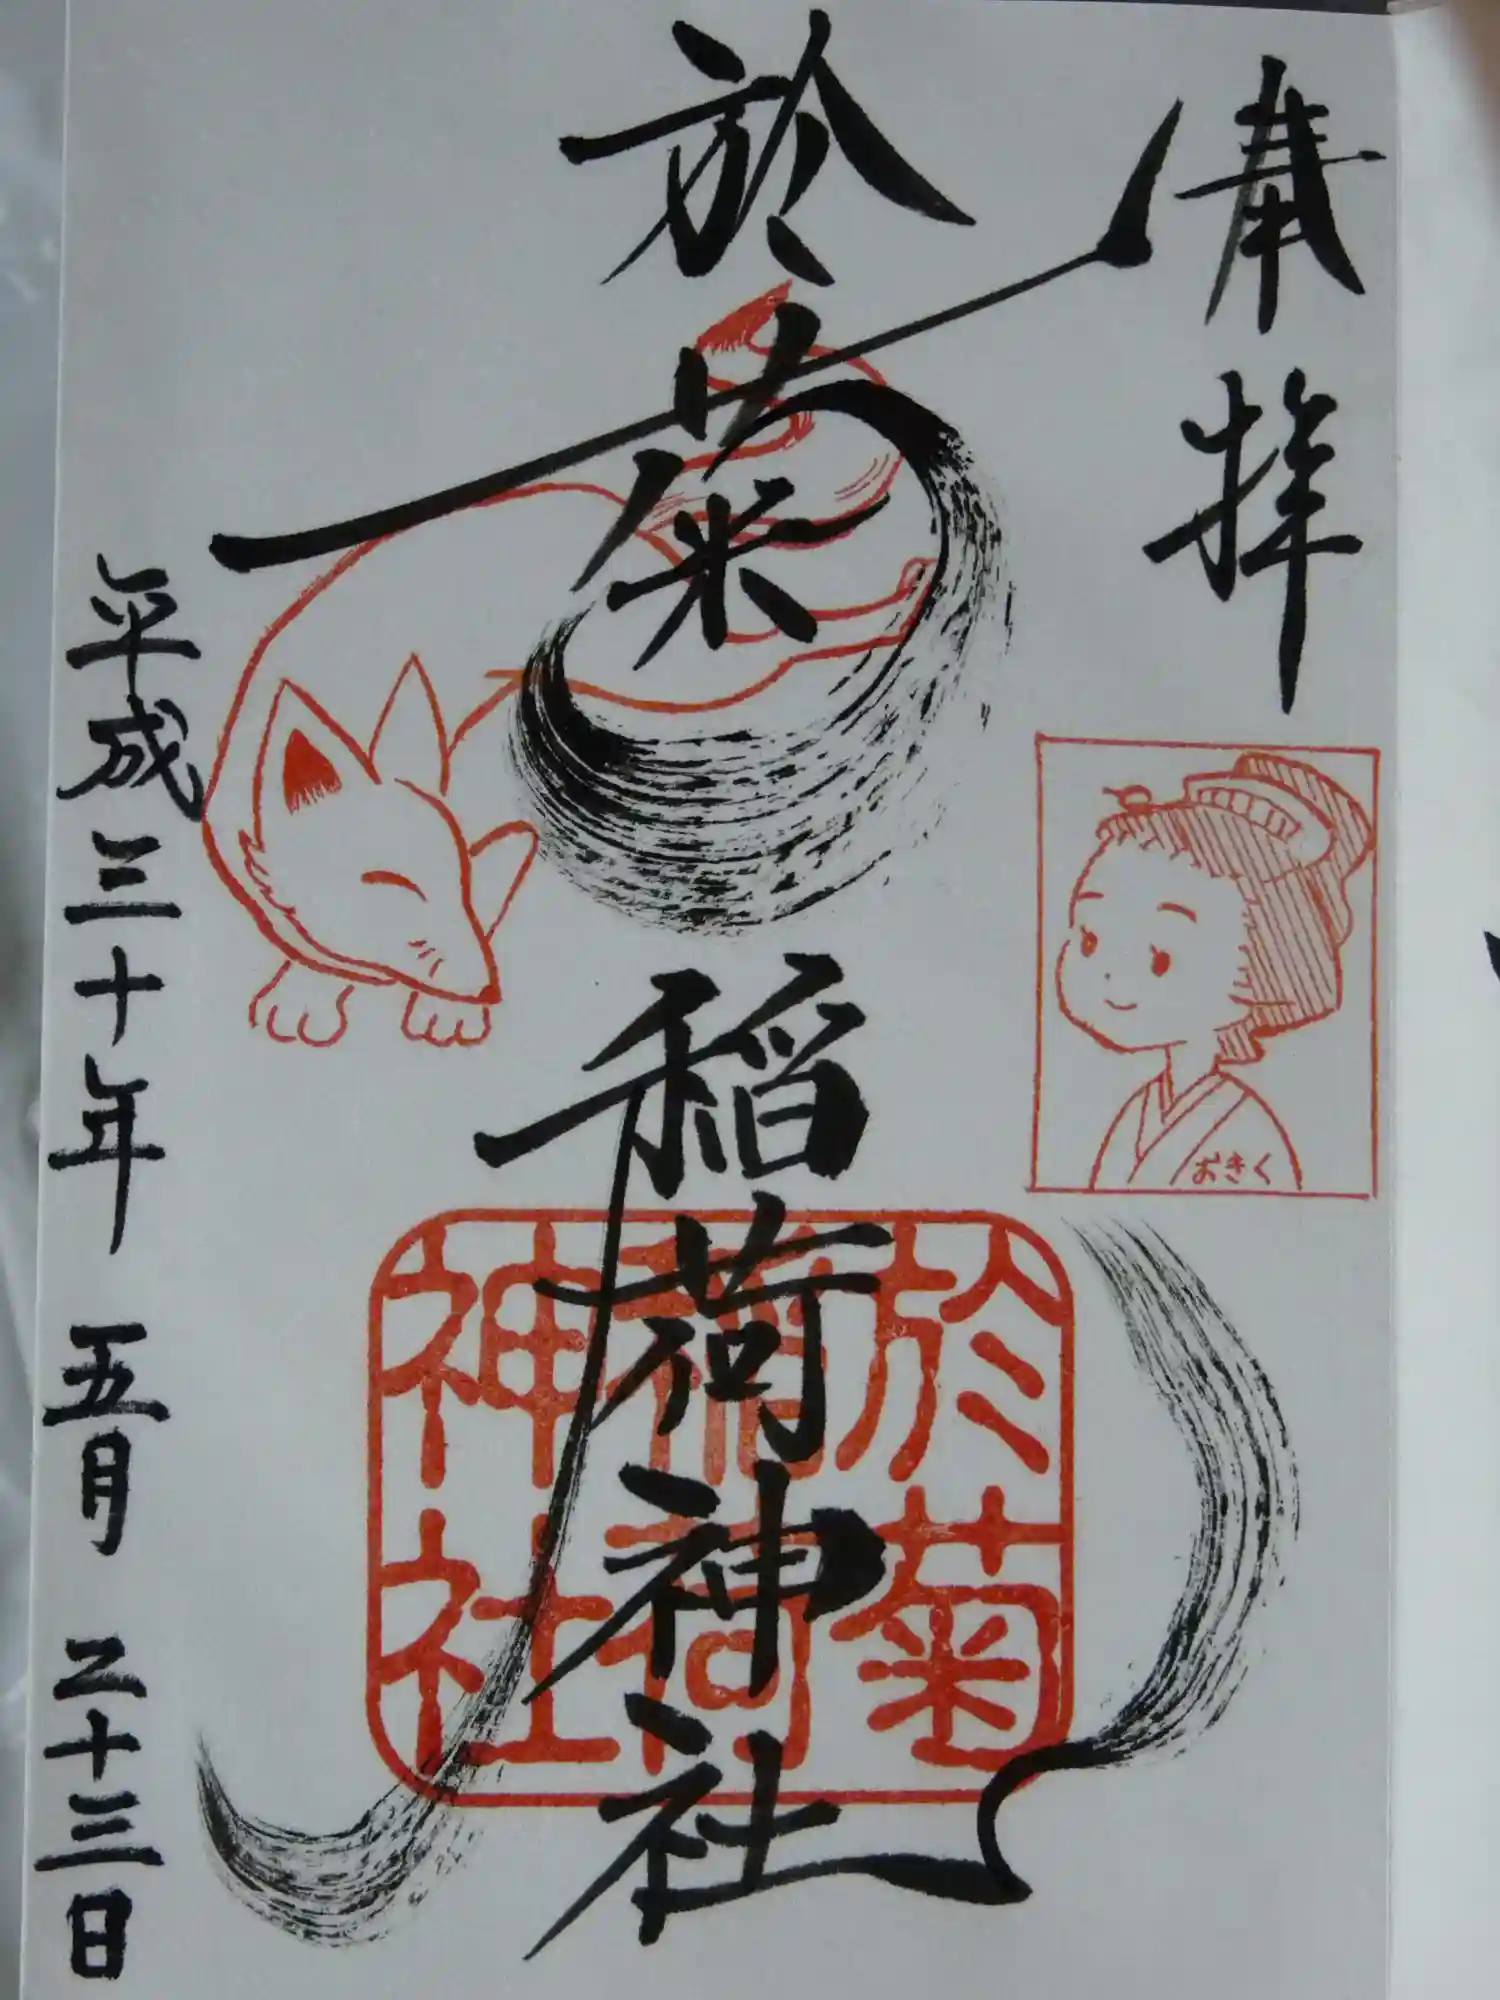 奉拝
おきく
於菊稲荷神社
於菊
稲荷
神社
平成三十年 五月 二十三日